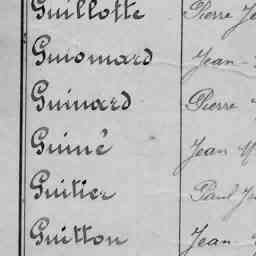 Guillotte Pierre
Guiomard Jean
Guinard Pierre
Guiné Jean
Guitier Paul
Guitton Jean